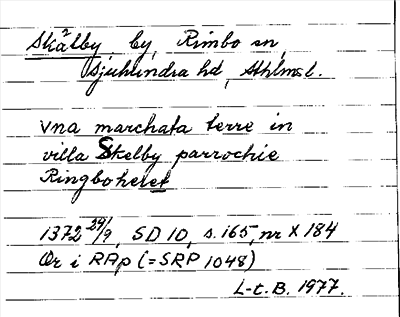 Skålby, by, Rimbo sn,
Sjuhundra hd, Sthlms l.
vna marchata terre in
villa Skelby parrochie
Ringboheret
1372 29/9, SD 10, s. 165, nr X 184
Or i RAp (=SRP 1048)
L-t. B. 1977.